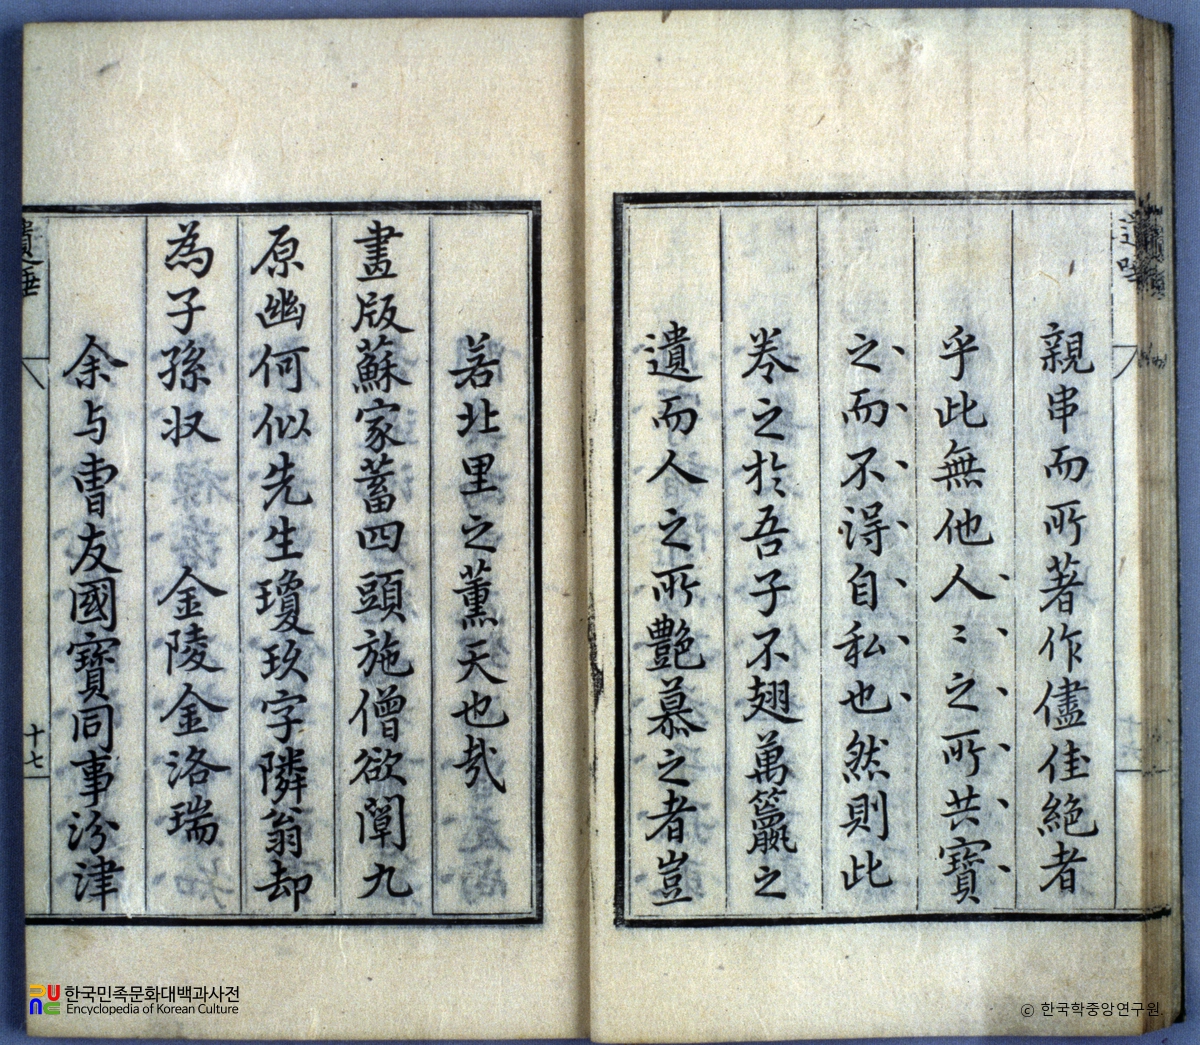 親串而所著作儘佳絶者
乎此無他人〻之所共寶
之而不得自私也然則此
券之於吾子不翅萬籯之
遺而人之所艶慕之者豈
若北里之薰天也㢤
畫版蘇家蓄四頭施僧欲闡九
原幽何似先生瓊玖字隣翁却
為子孫収 金陵金洛瑞
余与曺友國寶同事汾津
十七
한국민족문화대백과사전
Encyclopedia of Korean Culture
© 한국학중앙연구원